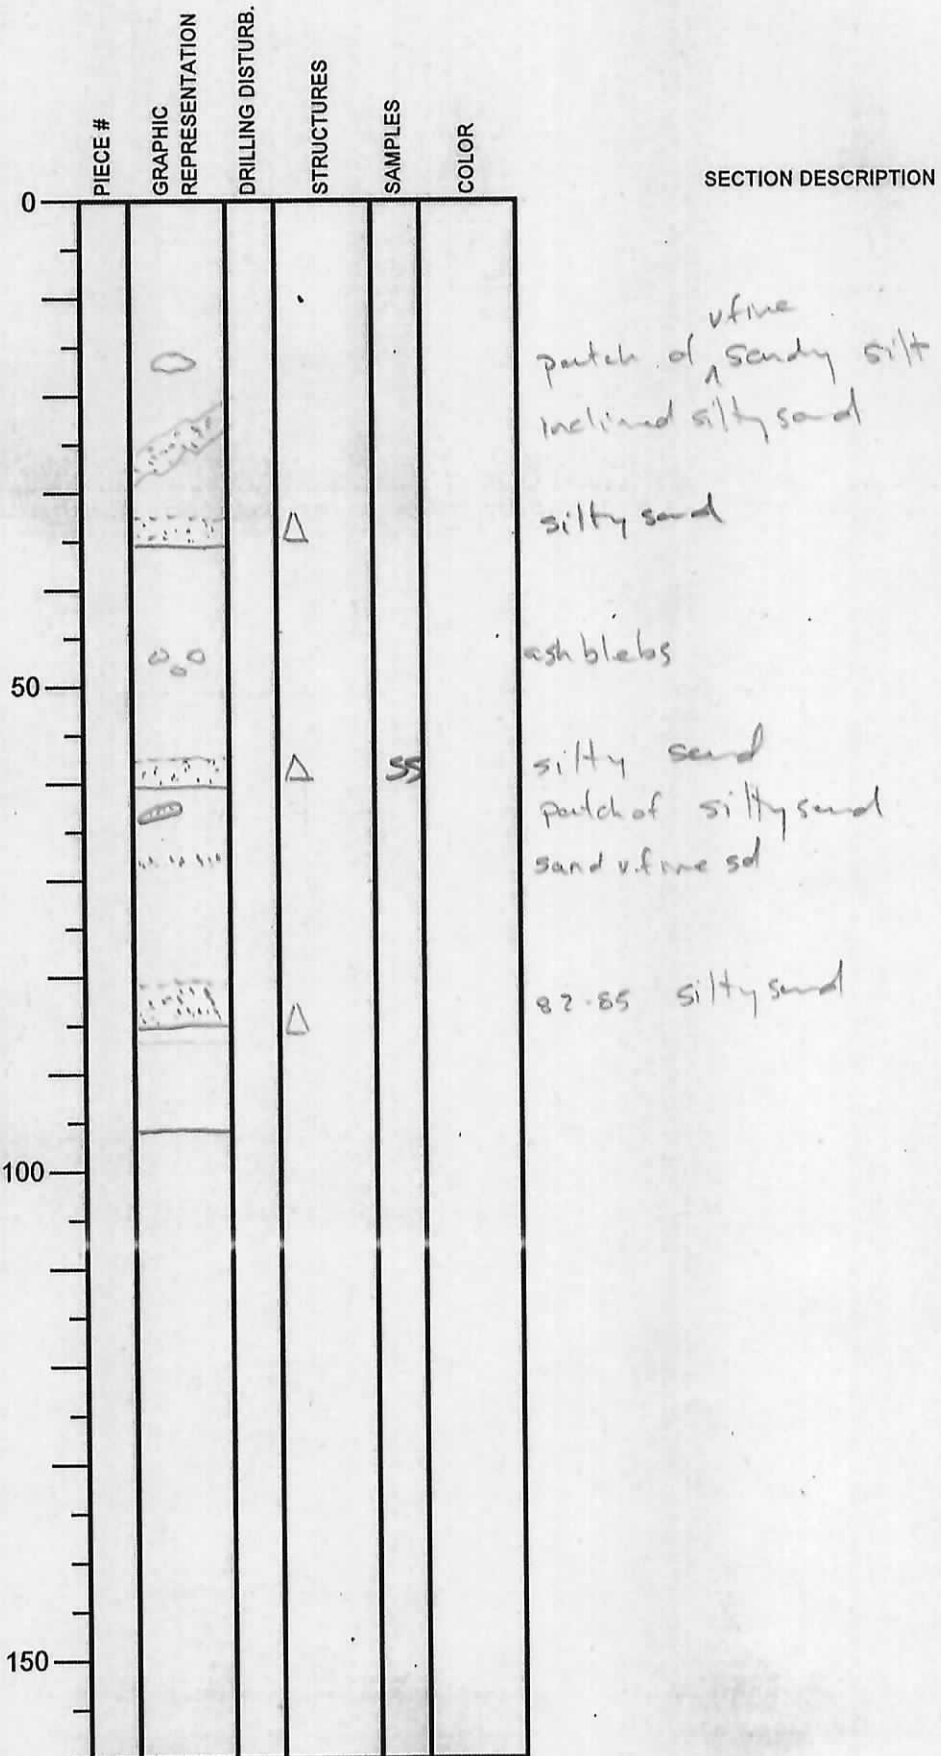 PIECE #
GRAPHIC
REPRESENTATION
DRILLING DISTURB.
STRUCTURES
SAMPLES
COLOR
SECTION DESCRIPTION
0
vfine
patch of ^ sandy silt
inclined silty sand
silty sand
ash blebs
50
SS
silty sand
patch of silty sand
sand v.fine sd
82-85 silty sand
100
150